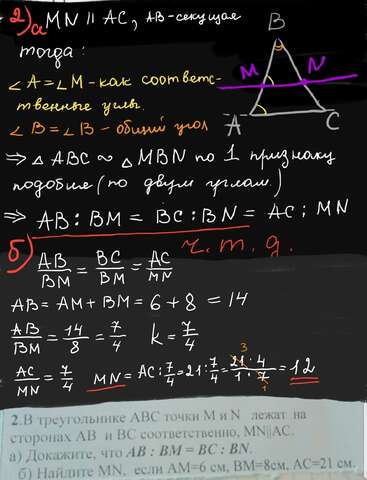 2) а) MN || AC, AB - секущая
тогда:
∠A = ∠M - как соответс-
твенные углы.
∠B = ∠B - общий угол
B
M
N
A
C
⇒ △ABC ∾ △MBN по 1 признаку
подобия (по двум углам)
⇒ AB : BM = BC : BN = AC : MN
ч.т.д.
б)
AB/BM = BC/BN = AC/MN
AB = AM + BM = 6 + 8 = 14
AB/BM = 14/8 = 7/4 k = 7/4
AC/MN = 7/4 MN = AC : 7/4 = 21 : 7/4 = 21 · 4 / 1 · 7 = 12
3
1
2.В треугольнике ABC точки M и N лежат на
сторонах AB и BC соответственно, MN||AC.
а) Докажите, что AB : BM = BC : BN.
б) Найдите MN, если AM=6 см, BM=8см, AC=21 см.